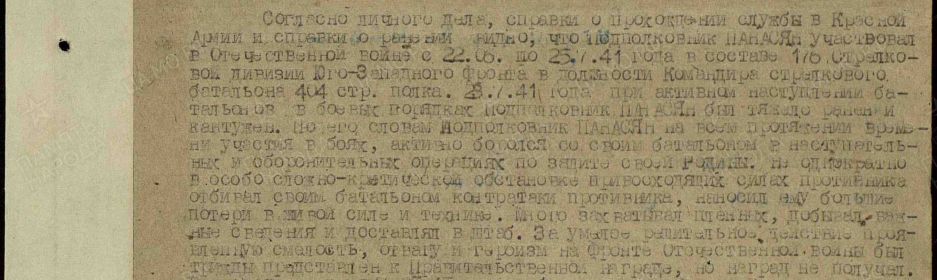 Согласно личного дела, справки о прохождении службы в Красной
Армии и справки о ранении видно, что подполковник ПАНАСЯН участвовал
в Отечественной войне с 22.06. по 23.7.41 года в составе 176 стрелко-
вой дивизии Юго-Западного фронта в должности Командира стрелкового
батальона 404 стр. полка. 23.7.41 года при активном наступлении ба-
тальонов в боевых порядках Подполковник ПАНАСЯН был тяжело ранен и
кантужен. По его словам Подполковник ПАНАСЯН на всем протяжении време-
ни участия в боях, активно боролся со своим батальоном в наступатель-
ных и оборонительных операциях по защите своей Родины. Не однократно
в особо сложно-кретической обстановке привосходящих силах противника
отбивал своим батальоном контратаки противника, наносил ему большие
потери в живой силе и технике. Много захватывал пленных, добывал важ-
ные сведения и доставлял в штаб. За умелое решительное действие прояв-
ленную смелость, отвагу и героизм на Фронте Отечественной войны был
трижды представлен к Правительственной награде, но наград не получал.